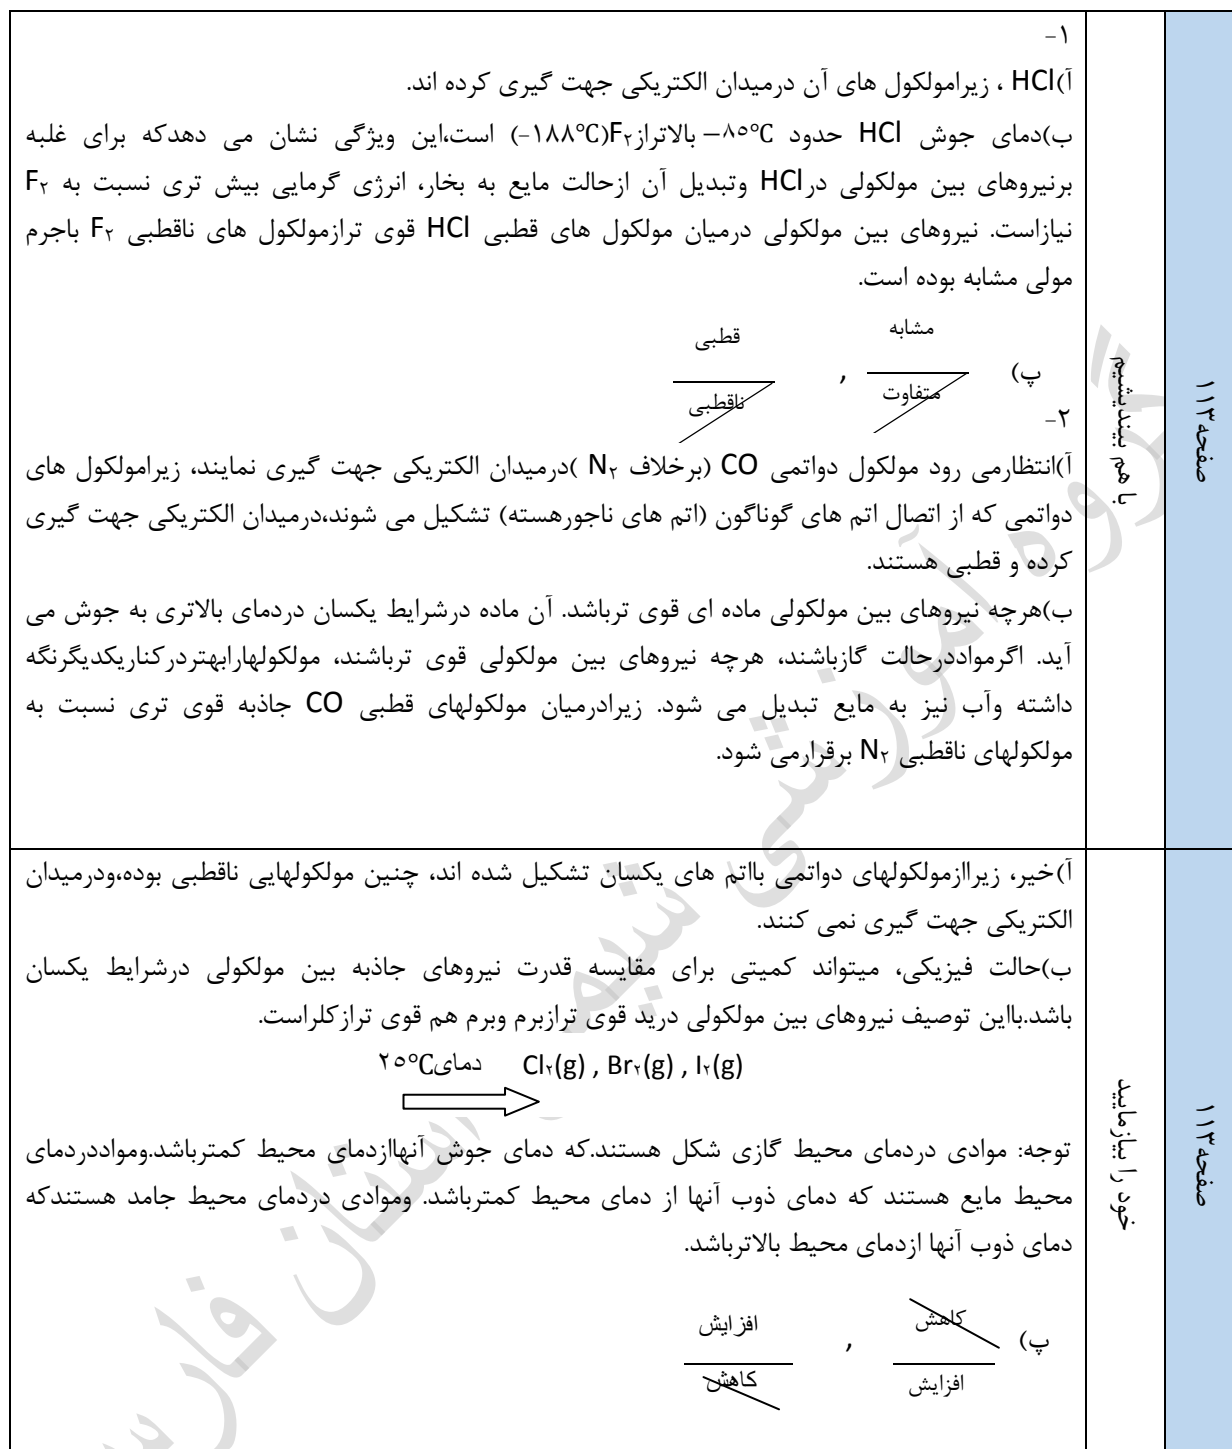 صفحه ۱۱۳
با هم بیندیشیم
۱-
آ)HCl ، زیرامولکول های آن درمیدان الکتریکی جهت گیری کرده اند.
ب)دمای جوش HCl حدود ۸۵°C– بالاتراز‌F۲(‎-۱۸۸°C) است،این ویژگی نشان می دهدکه برای غلبه
برنیروهای بین مولکولی درHCl وتبدیل آن ازحالت مایع به بخار، انرژی گرمایی بیش تری نسبت به F۲
نیازاست. نیروهای بین مولکولی درمیان مولکول های قطبی HCl قوی ترازمولکول های ناقطبی F۲ باجرم
مولی مشابه بوده است.
پ) مشابه , قطبی
متفاوت ناقطبی
۲-
آ)انتظارمی رود مولکول دواتمی CO (برخلاف N۲ )درمیدان الکتریکی جهت گیری نمایند، زیرامولکول های
دواتمی که از اتصال اتم های گوناگون (اتم های ناجورهسته) تشکیل می شوند،درمیدان الکتریکی جهت گیری
کرده و قطبی هستند.
ب)هرچه نیروهای بین مولکولی ماده ای قوی ترباشد. آن ماده درشرایط یکسان دردمای بالاتری به جوش می
آید. اگرمواددرحالت گازباشند، هرچه نیروهای بین مولکولی قوی ترباشند، مولکولهارابهتردرکناریکدیگرنگه
داشته وآب نیز به مایع تبدیل می شود. زیرادرمیان مولکولهای قطبی CO جاذبه قوی تری نسبت به
مولکولهای ناقطبی N۲ برقرارمی شود.
صفحه ۱۱۳
خود را بیازمایید
آ)خیر، زیراازمولکولهای دواتمی بااتم های یکسان تشکیل شده اند، چنین مولکولهایی ناقطبی بوده،ودرمیدان
الکتریکی جهت گیری نمی کنند.
ب)حالت فیزیکی، میتواند کمیتی برای مقایسه قدرت نیروهای جاذبه بین مولکولی درشرایط یکسان
باشد.بااین توصیف نیروهای بین مولکولی درید قوی ترازبرم وبرم هم قوی ترازکلراست.
دمای۲۵°C Cl۲(g) , Br۲(g) , I۲(g)
توجه: موادی دردمای محیط گازی شکل هستند.که دمای جوش آنهاازدمای محیط کمترباشد.ومواددردمای
محیط مایع هستند که دمای ذوب آنها از دمای محیط کمترباشد. وموادی دردمای محیط جامد هستندکه
دمای ذوب آنها ازدمای محیط بالاترباشد.
پ) کاهش , افزایش
افزایش کاهش
گروه آموزشی شیمی استان فارس